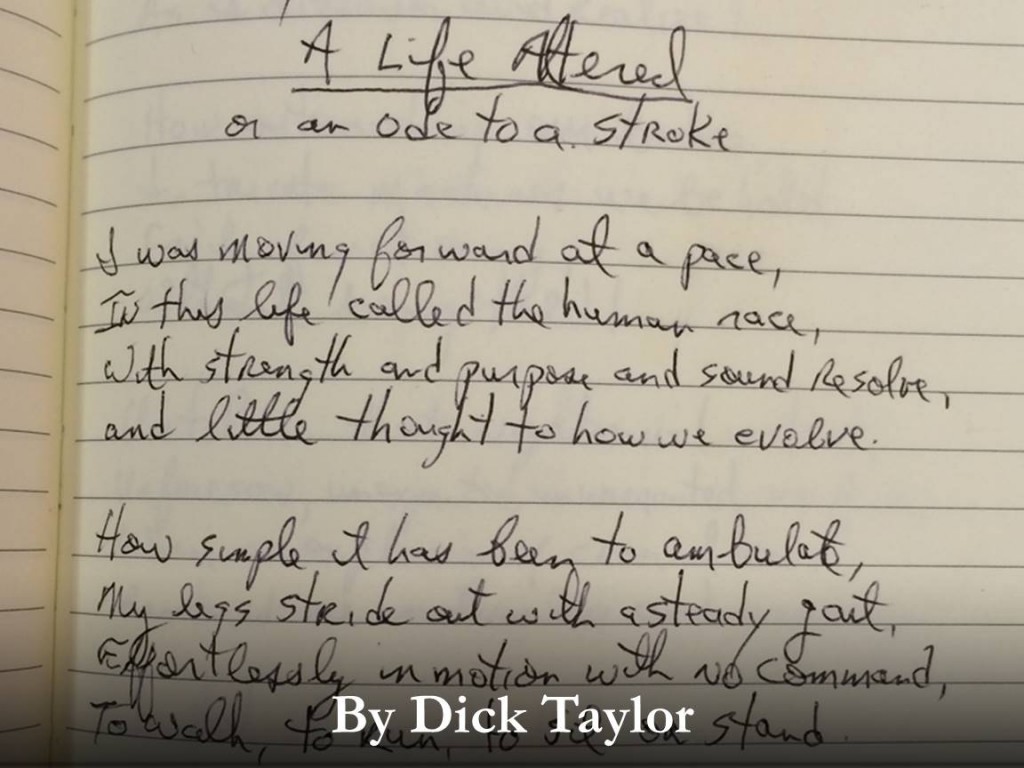 A Life Altered
or an ode to a stroke
I was moving forward at a pace,
In this life called the human race,
With strength and purpose and sound Resolve,
and little thought to how we evolve.
How simple it has been to ambulate,
My legs stride out with a steady gait,
Effortlessly in motion with no command,
To walk, to run, to sit or stand.
By Dick Taylor